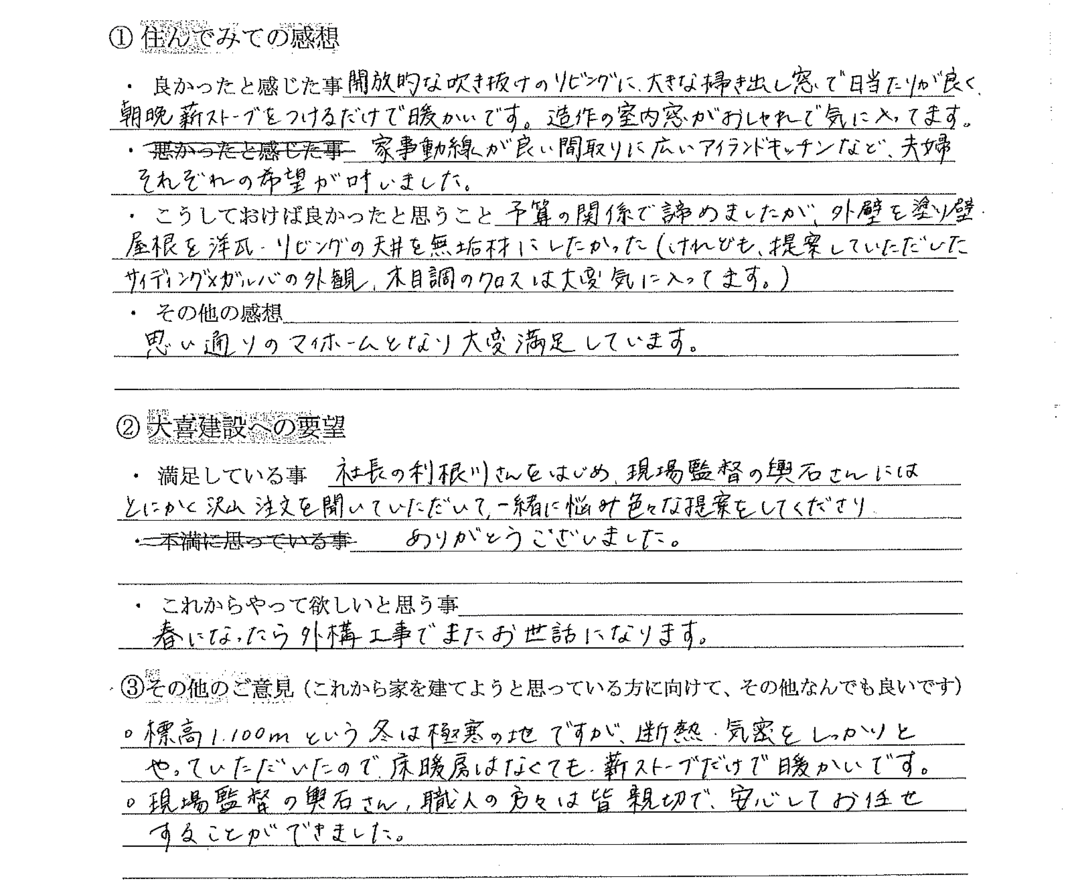 ① 住んでみての感想
・ 良かったと感じた事 開放的な吹き抜けのリビングに、大きな掃き出し窓で日当たりが良く、
朝晩薪ストーブをつけるだけで暖かいです。造作の室内窓がおしゃれで気に入ってます。
・ 悪かったと感じた事 家事動線が良い間取りに広いアイランドキッチンなど、夫婦
それぞれの希望が叶いました。
・ こうしておけば良かったと思うこと 予算の関係で諦めましたが、外壁を塗り壁・
屋根を洋瓦・リビングの天井を無垢材にしたかった(けれども、提案していただいた
サイディング×ガルバの外観、木目調のクロスは大変気に入ってます。)
・ その他の感想
思い通りのマイホームとなり大変満足しています。
② 大喜建設への要望
・ 満足している事 社長の利根川さんをはじめ、現場監督の輿石さんには
とにかく沢山注文を聞いていただいて、一緒に悩み色々な提案をしてくださり
・ 不満に思っている事 ありがとうございました。
・ これからやって欲しいと思う事
春になったら外構工事でまたお世話になります。
③その他のご意見（これから家を建てようと思っている方に向けて、その他なんでも良いです）
○ 標高1.100mという冬は極寒の地ですが、断熱・気密をしっかりと
やっていただいたので床暖房はなくても、薪ストーブだけで暖かいです。
○ 現場監督の輿石さん、職人の方々は皆親切で、安心してお任せ
することができました。